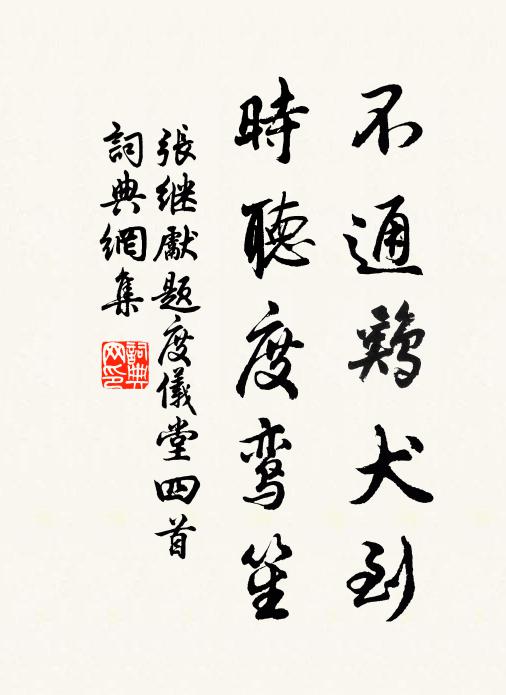 不通鷄犬到
時聽度鸾笙
張继獻题度儀堂四首
詞典網集
詞典网印